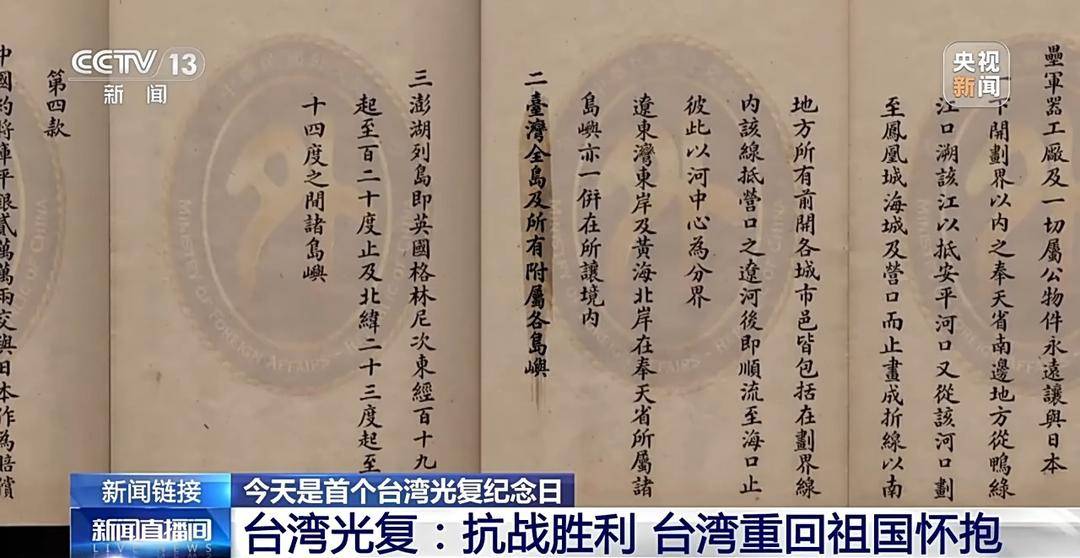 CCTV 13
新闻
央视
新闻
壘軍器工廠及一切屬公物件永遠讓與日本
一下開劃界以內之奉天省南邊地方從鴨綠
江口溯該江以抵安平河口又從該河口劃
至鳳凰城海城及營口而止畫成折線以南
地方所有前開各城市邑皆包括在劃界線
內該線抵營口之遼河後即順流至海口止
彼此以河中心為分界
遼東灣東岸及黃海北岸在奉天省所屬諸
島嶼亦一併在所讓境內
二臺灣全島及所有附屬各島嶼
三澎湖列島即英國格林尼次東經百十九
起至百二十度止及北緯二十三度起至
十四度之間諸島嶼
第四款
中國約將庫平銀貳萬萬兩交與日本作為賠償
MINISTRY OF FOREIGN AFFAIRS
新闻链接
今天是首个台湾光复纪念日
新闻直播间
LIVE NEWS
台湾光复：抗战胜利 台湾重回祖国怀抱